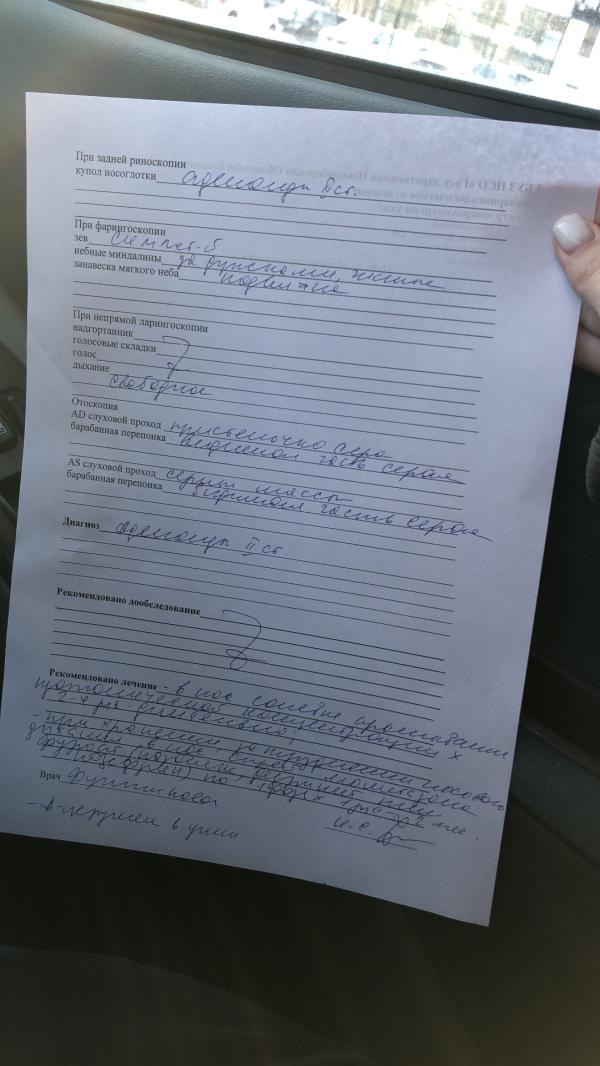 При задней риноскопии
купол носоглотки аденоиды II ст.
При фарингоскопии
зев
небные миндалины за дужками, чистые
занавеска мягкого неба подвижна
При непрямой ларингоскопии
надгортанник
голосовые складки
голос
дыхание
свободное
Отоскопия
AD слуховой проход пристеночно сера
барабанная перепонка видимая часть серая
AS слуховой проход серные массы
барабанная перепонка видимая часть серая
Диагноз аденоиды II ст.
Рекомендовано дообследование
Рекомендовано лечение - в нос солевые промывания
изотонической концентрации х
2-4 р/с длительно;
- при хроническом затруднении носового
дыхания в нос спрей мометазона
фуроат
по 1 дозе х 1 р/с - 2 мес.
Врач
- А-церумен в уши